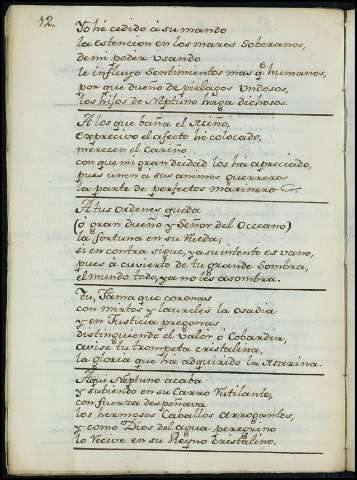 42.
Yo hé cedido á su mando
la estencion en los mares Soberanos,
de mi poder usando
le influyo Sentimientos mas q.e humanos,
por que dueño de pielagos Vndosos,
los hijos de Neptuno haga dichosos.
A los que baña el Miño,
expresivo el afecto hé colocado,
merecen el Cariño
con que mi gran deidad los há apreciado,
pues unen á sus animos guerreros
la parte de perfectos marineros.
A tus ordenes queda
(ó gran dueño y Señor del Occeano)
la fortuna en su Rueda;
si en contra sigue, ya su intento es vano,
pues á cuvierto de tu grande Sombra,
el mundo todo, ya no les asombra.
Tu, Fama que coronas
con mirtos y laureles la osadia
y en Justicia pregonas
distinguiendo el Valor ó Cobardia,
avise tu trompeta cristalina,
la gloria que há adquirido la Marina.
Aqui Neptuno acaba
y subiendo en su Carro Rutilante,
con fuerza despeñava
los hermosos Caballos arrogantes,
y como Dios del agua peregrino
lo Recive en su Reyno cristalino.